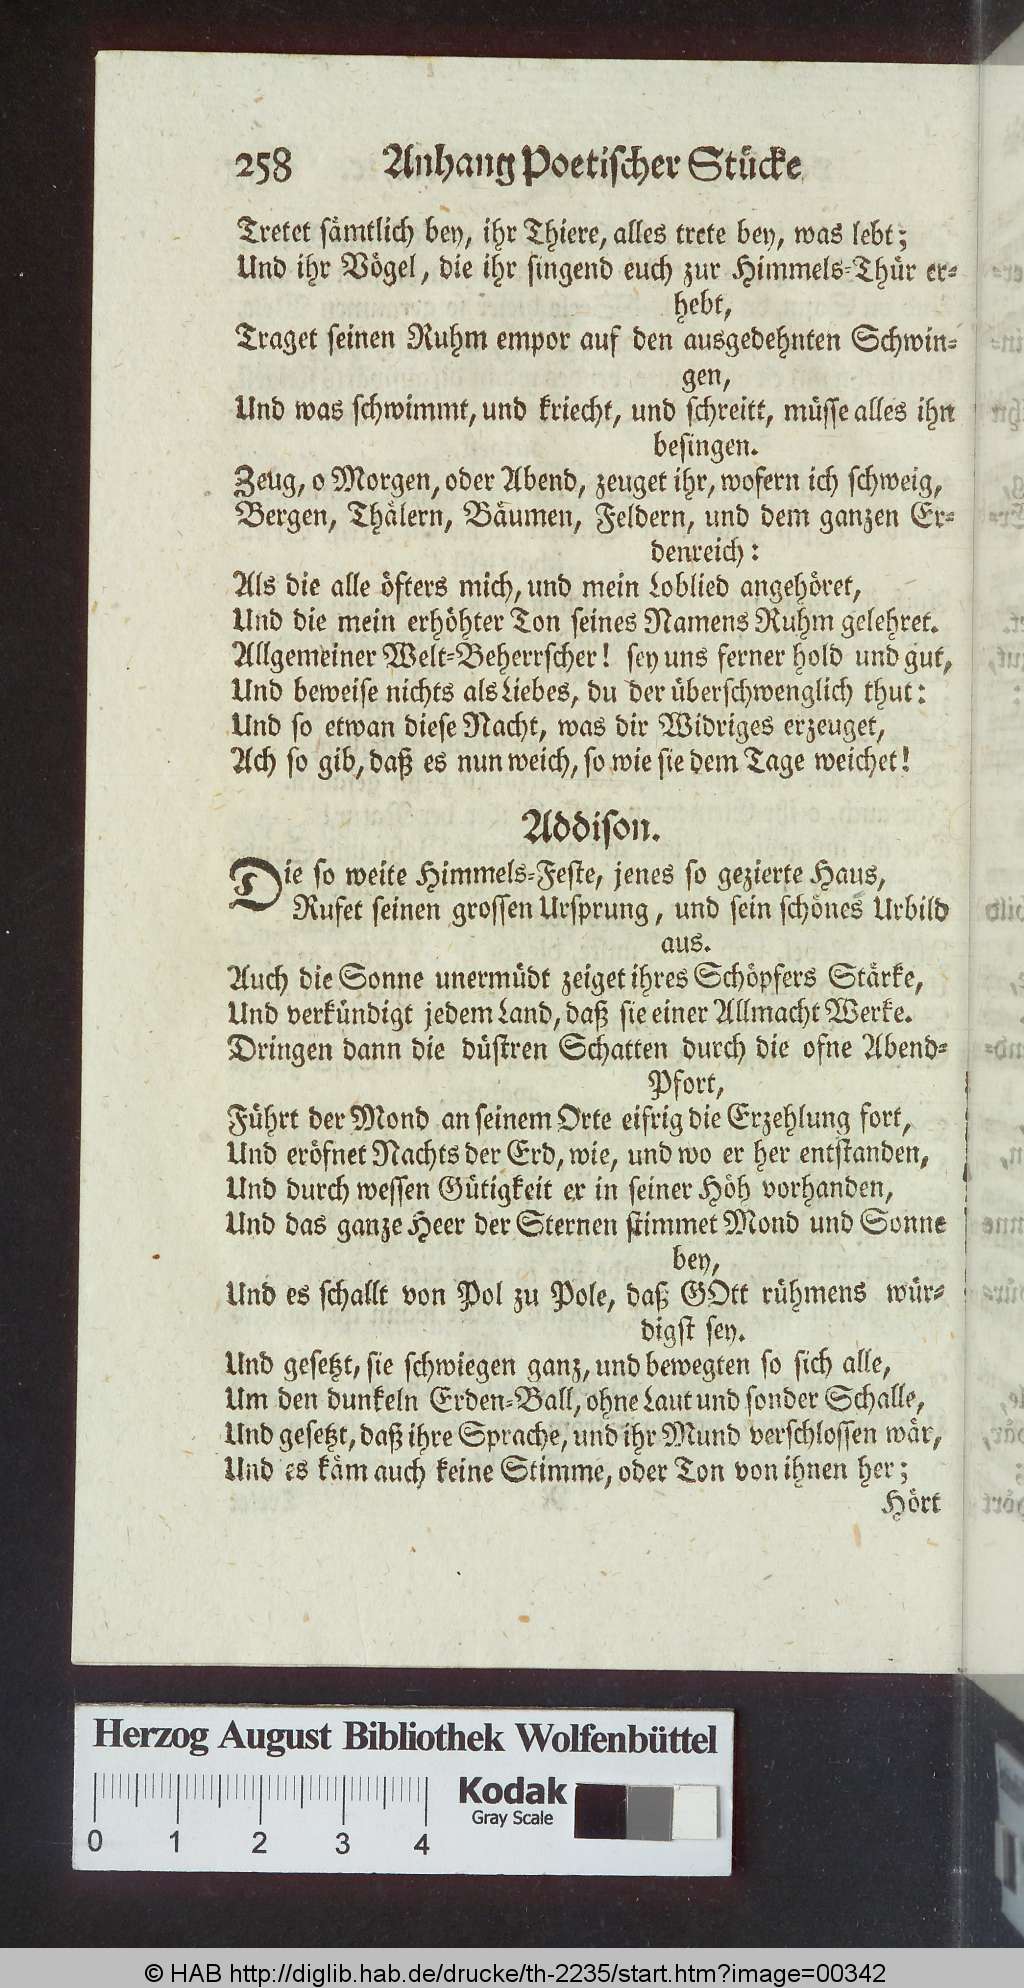 258 Anhang Poetischer Stücke
Tretet sämtlich bey, ihr Thiere, alles trete bey, was lebt;
Und ihr Vögel, die ihr singend euch zur Himmels-Thür er-
hebt,
Traget seinen Ruhm empor auf den ausgedehnten Schwin-
gen,
Und was schwimmt, und kriecht, und schreitt, müsse alles ihn
besingen.
Zeug, o Morgen, oder Abend, zeuget ihr, wofern ich schweig,
Bergen, Thälern, Bäumen, Feldern, und dem ganzen Er-
denreich:
Als die alle öfters mich, und mein Loblied angehöret,
Und die mein erhöhter Ton seines Namens Ruhm gelehret.
Allgemeiner Welt-Beherrscher! sey uns ferner hold und gut,
Und beweise nichts als Liebes, du der überschwenglich thut:
Und so etwan diese Nacht, was dir Widriges erzeuget,
Ach so gib, daß es nun weich, so wie sie dem Tage weichet!
Addison.
Die so weite Himmels-Feste, jenes so gezierte Haus,
Rufet seinen grossen Ursprung, und sein schönes Urbild
aus.
Auch die Sonne unermüdt zeiget ihres Schöpfers Stärke,
Und verkündigt jedem Land, daß sie einer Allmacht Werke.
Dringen dann die düstren Schatten durch die ofne Abend-
Pfort,
Führt der Mond an seinem Orte eifrig die Erzehlung fort,
Und eröfnet Nachts der Erd, wie, und wo er her entstanden,
Und durch wessen Gütigkeit er in seiner Höh vorhanden,
Und das ganze Heer der Sternen stimmet Mond und Sonne
bey,
Und es schallt von Pol zu Pole, daß GOtt rühmens wür-
digst sey.
Und gesetzt, sie schwiegen ganz, und bewegten so sich alle,
Um den dunkeln Erden-Ball, ohne Laut und sonder Schalle,
Und gesetzt, daß ihre Sprache, und ihr Mund verschlossen wär,
Und es käm auch keine Stimme, oder Ton von ihnen her;
Hört
Herzog August Bibliothek Wolfenbüttel
Kodak
Gray Scale
0 1 2 3 4
© HAB http://diglib.hab.de/drucke/th-2235/start.htm?image=00342